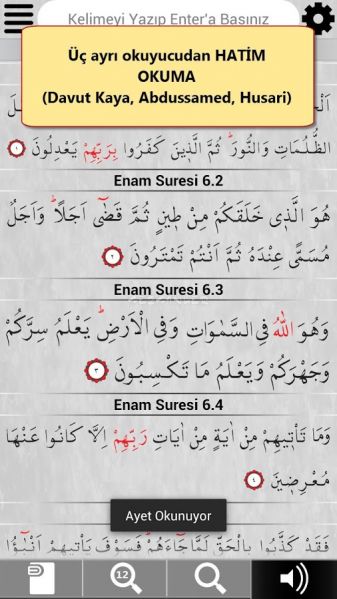 Kelimeyi Yazıp Enter'a Basınız
Üç ayrı okuyucudan HATİM
OKUMA
(Davut Kaya, Abdussamed, Husari)
الظُّلُمَاتِ وَالنُّورَ ثُمَّ الَّذ۪ينَ كَفَرُوا بِرَبِّهِمْ يَعْدِلُونَ ١
Enam Suresi 6.2
هُوَ الَّذ۪ي خَلَقَكُمْ مِنْ ط۪ينٍ ثُمَّ قَضٰٓى اَجَلًا وَاَجَلٌ
مُسَمًّى عِنْدَهُ ثُمَّ اَنْتُمْ تَمْتَرُونَ ٢
Enam Suresi 6.3
وَهُوَ اللّٰهُ فِي السَّمٰوَاتِ وَفِي الْاَرْضِ يَعْلَمُ سِرَّكُمْ
وَجَهْرَكُمْ وَيَعْلَمُ مَا تَكْسِبُونَ ٣
Enam Suresi 6.4
وَمَا تَأْت۪يهِمْ مِنْ اٰيَةٍ مِنْ اٰيَاتِ رَبِّهِمْ اِلَّا كَانُوا عَنْهَا
مُعْرِض۪ينَ ٤
Ayet Okunuyor
فَقَدْ كَذَّبُوا بِالْحَقِّ لَمَّا جَٓاءَهُمْ فَسَوْفَ يَأْت۪يهِمْ اَنْبٰٓؤُا
12